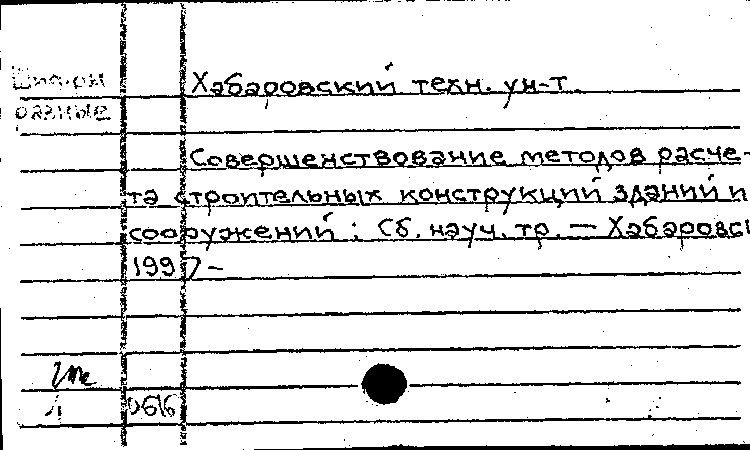 Шифры
разные
Хабаровский техн. ун-т.
Совершенствование методов расче-
та строительных конструкций зданий и
сооружений : Сб. науч. тр. — Хабаровс
1997 –